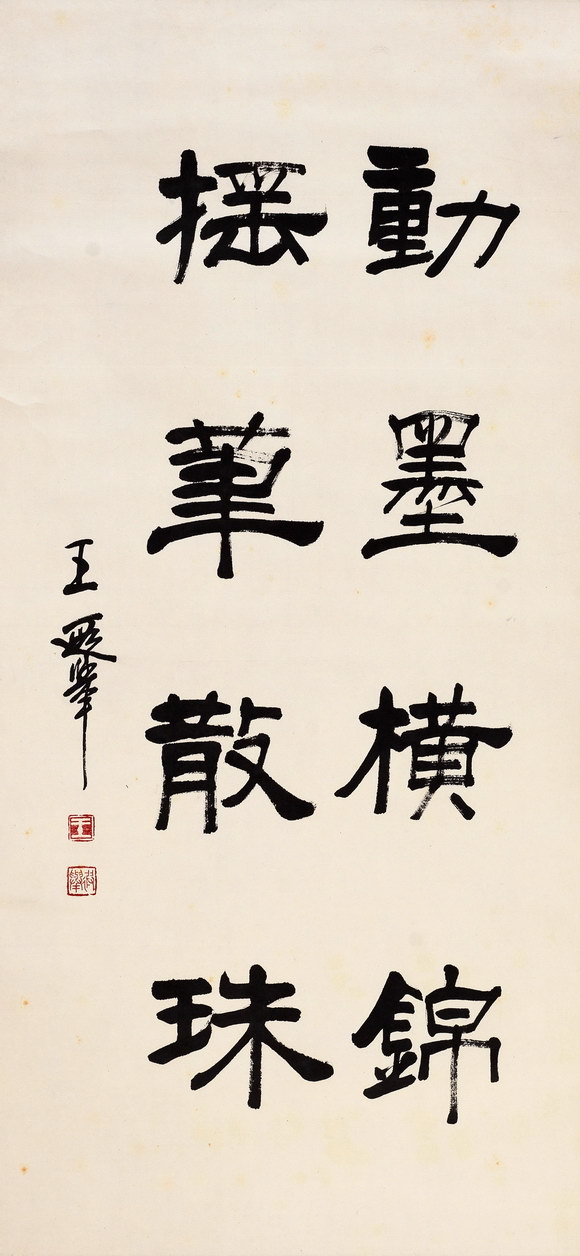 動墨橫錦
搖筆散珠
王遐舉
王
遐舉